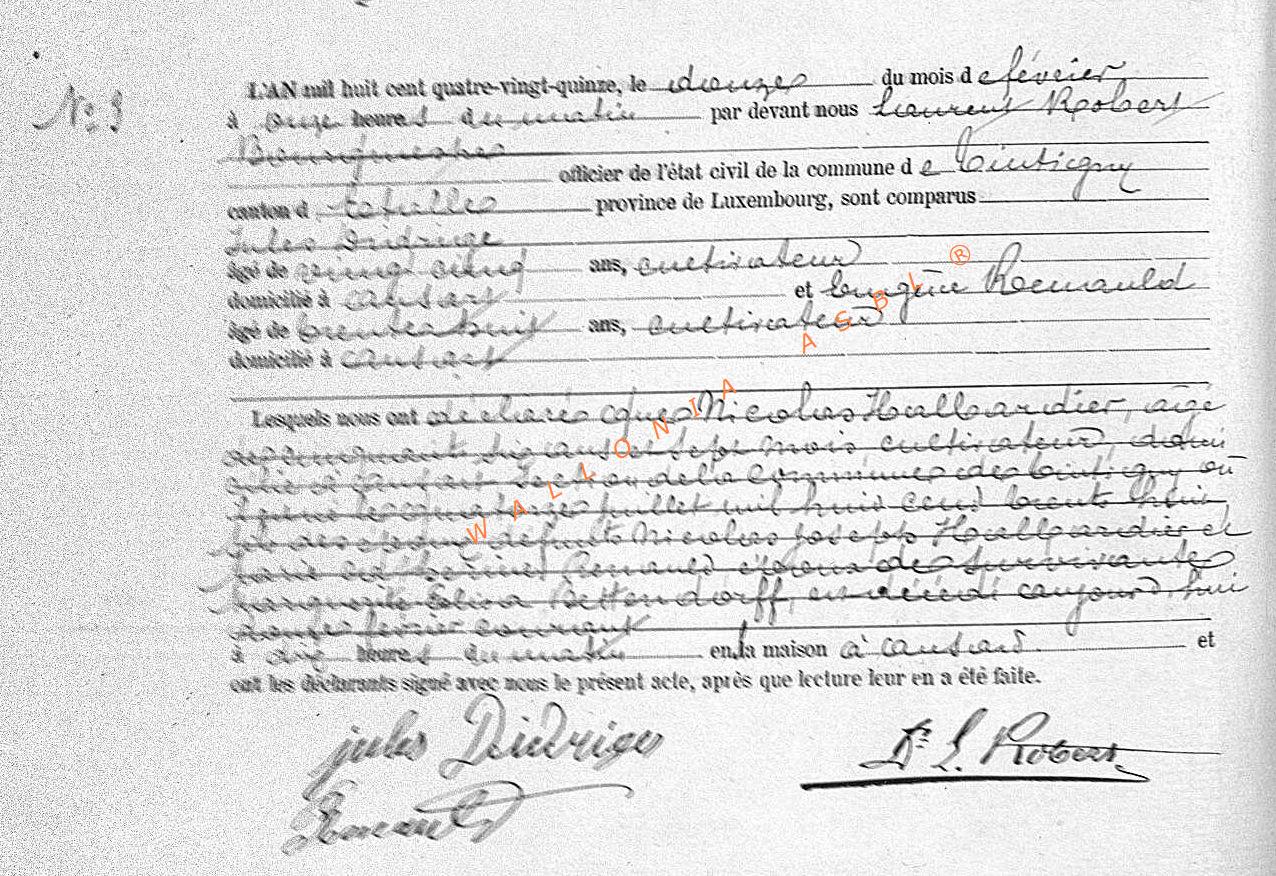 N° 9
L'AN mil huit cent quatre-vingt-quinze, le douze du mois de février
à onze heures du matin par devant nous Laurent Robert
Bourgmestre
officier de l'état civil de la commune de Tintigny
canton d'Etalle province de Luxembourg, sont comparus
Jules
âgé de cinq ans, cultivateur
domicilié à Ansart et Eugène Remauld
âgé de trente huit ans, cultivateur
domicilié à Ansart
Lesquels nous ont déclaré que Nicolas Hallbardier, âgé
cinquante six ans et sept mois, cultivateur, domi
cilié à Ansart section de la commune de Tintigny où
il juillet mil huit cent trente huit,
fils des époux défunts Nicolas Joseph Hallbardier et
Marie époux de survivante
Marguerite Elisa Bettendorff, est décédé aujourd'hui
douze février courant
à heures du matin en la maison à Ansart et
ont les déclarants signé avec nous le présent acte, après que lecture leur en a été faite.
jules
Dr L. Robert
WALLONIA ASBL ®